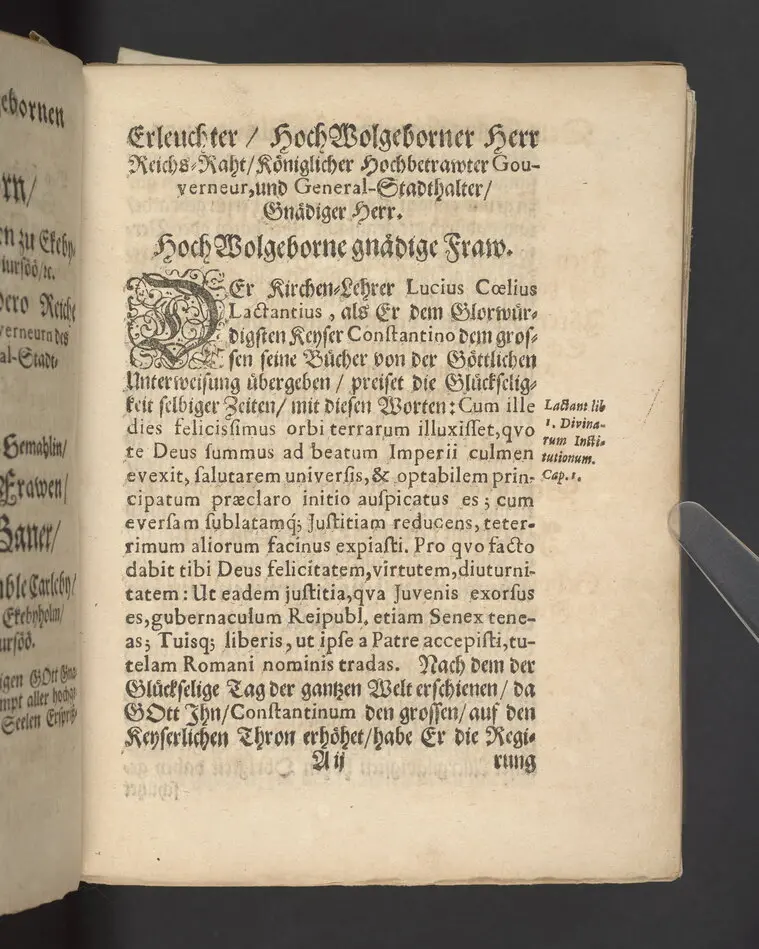 ebornen
rn/
n zu Ekeby,
iursöö/ꝛc.
dero Reichs
verneurn des
al-Stadt-
Gemahlin/
Frawen/
Baner/
ble Carleby/
Ekebyholm/
ursöö.
igen GOtt
mpt aller
Seelen
Erleuchter / HochWolgeborner Herr
Reichs-Raht/Königlicher Hochbetrawter Gou-
verneur,und General-Stadthalter/
Gnädiger Herr.
HochWolgeborne gnädige Fraw.
DEr Kirchen-Lehrer Lucius Cœlius
Lactantius, als Er dem Glorwür-
digsten Keyser Constantino dem gros-
sen seine Bücher von der Göttlichen
Unterweisung übergeben / preiset die Glückselig-
keit selbiger Zeiten/ mit diesen Worten: Cum ille
dies felicissimus orbi terrarum illuxisset,qvo
te Deus summus ad beatum Imperii culmen
evexit, salutarem universis,& optabilem prin-
cipatum præclaro initio auspicatus es; cum
eversam sublatamq; Justitiam reducens, teter-
rimum aliorum facinus expiasti. Pro qvo facto
dabit tibi Deus felicitatem,virtutem,diuturni-
tatem: Ut eadem justitia,qva Juvenis exorsus
es,gubernaculum Reipubl. etiam Senex tene-
as; Tuisq; liberis, ut ipse a Patre accepisti,tu-
telam Romani nominis tradas. Nach dem der
Glückselige Tag der gantzen Welt erschienen/ da
GOtt Ihn/Constantinum den grossen/ auf den
Keyserlichen Thron erhöhet/habe Er die Regi-
A ij rung
Lactant lib
1. Divina-
rum Insti-
tutionum.
Cap. 1.